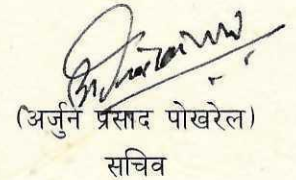 (अर्जुन प्रसाद पोखरेल)
सचिव